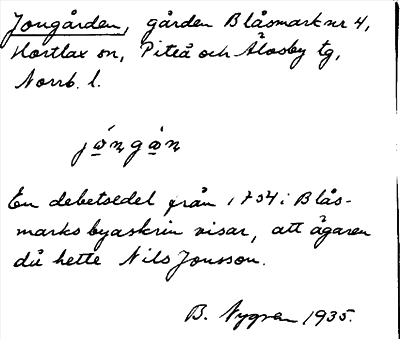 Jongården, gården Blåsmark nr 4,
Hortlax sn, Piteå och Älvsby tg,
Norrb. l.
En debetsedel från 1734 i Blås-
marks byaskrin visar, att ägaren
då hette Nils Jonsson.
B. Nygren 1935.